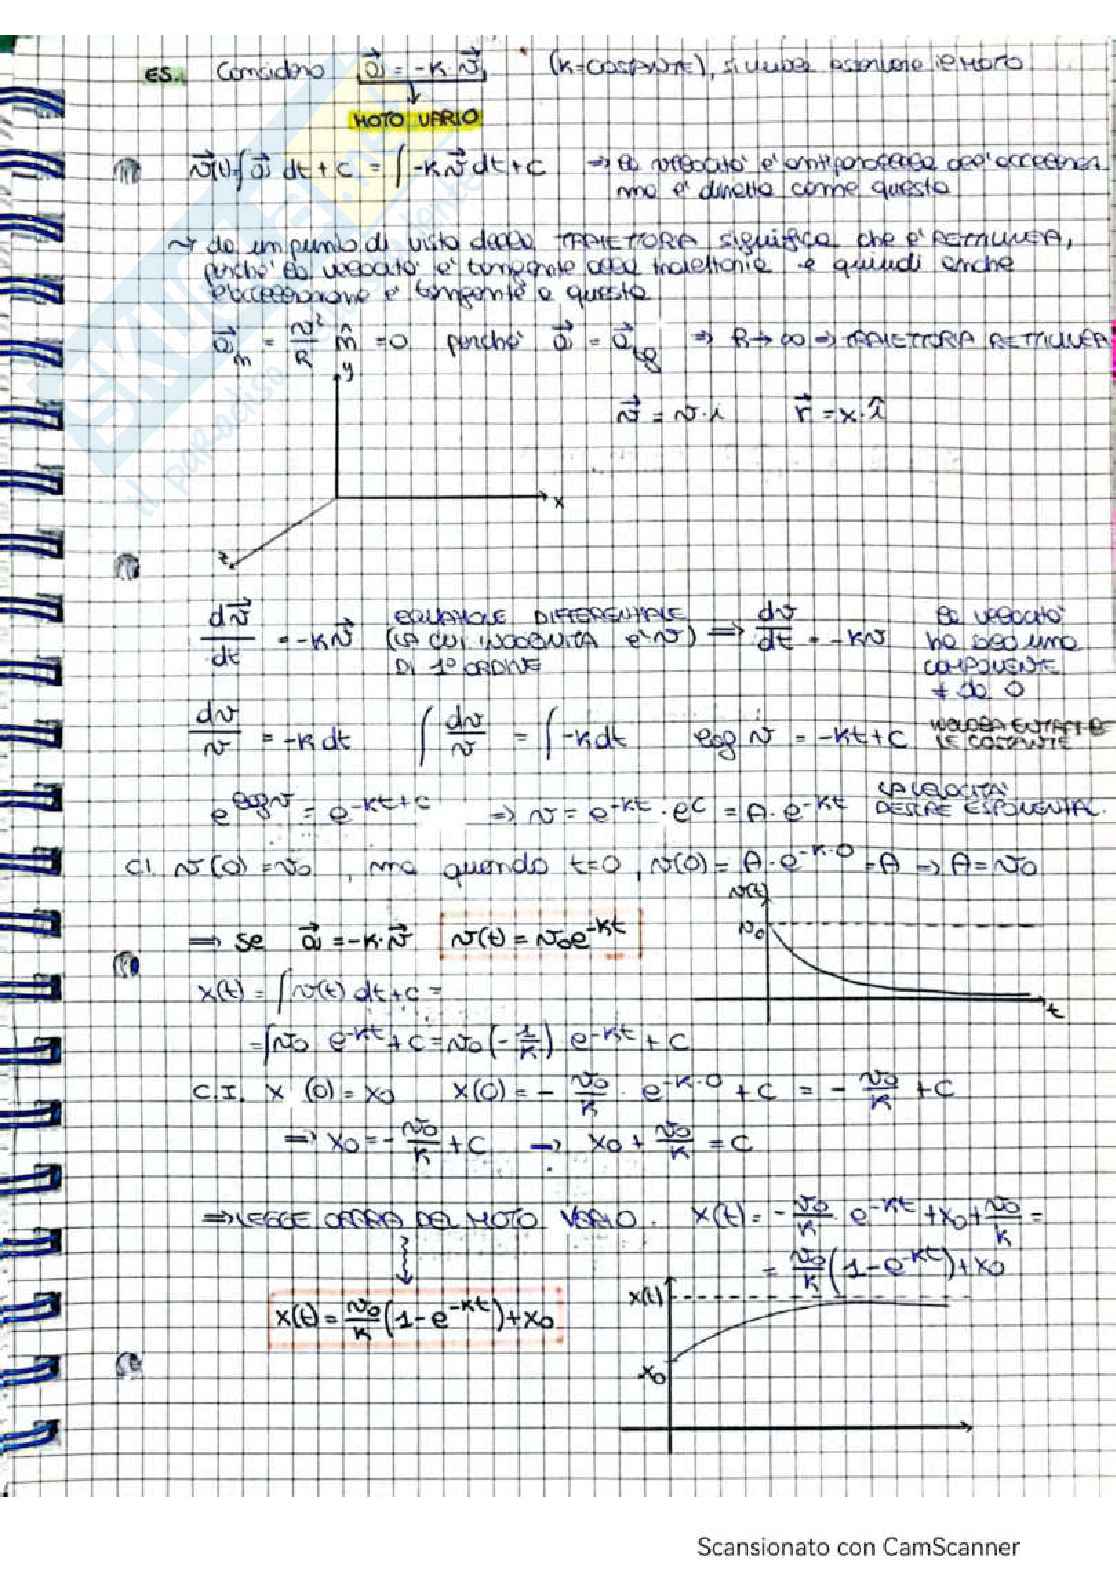 ES. Considero a⃗ = -k·v⃗ (k=COSTANTE), si vuole il MOTO
MOTO VARIO
v⃗(t)=∫ a⃗ dt + c = ∫ -k v⃗ dt + c ⇒ la velocità è antiparallela all'accelerazione
ma è diretta come questa
⤳ da un punto di vista della TRAIETTORIA significa che è RETTILINEA,
perché la velocità è tangente alla traiettoria e quindi anche
l'accelerazione è tangente a questa
a⃗n = v²/R n̂ = 0 perché a⃗ = a⃗tg ⇒ R→∞ ⇒ TRAIETTORIA RETTILINEA
y
v⃗ = v·i r⃗ = x·î
x
z
dv⃗/dt = -kv⃗ EQUAZIONE DIFFERENZIALE (LA CUI INCOGNITA è v) DI 1° ORDINE ⇒ dv/dt = -kv la velocità ha solo una COMPONENTE ≠ da 0
dv/v = -k dt ∫ dv/v = ∫ -k dt log v = -kt + c LE COSTANTE
e^(log v) = e^(-kt+c) ⇒ v = e^(-kt) · e^c = A·e^(-kt) LA VELOCITÀ ESPONENTIAL.
C.I. v(0) = v0, ma quando t=0, v(0) = A·e^(-k·0) = A → A = v0
v(t)
v0
⇒ se a⃗ = -k·v⃗ v(t) = v0e^(-kt)
x(t) = ∫ v(t) dt + c =
t
= ∫ v0 e^(-kt) + c = v0 (-1/k) e^(-kt) + c
C.I. x (0) = x0 x(0) = - v0/k · e^(-k·0) + c = - v0/k + c
⇒ x0 = - v0/k + c → x0 + v0/k = c
⇒ LEGGE ORARIA DEL MOTO VARIO. x(t) = - v0/k e^(-kt) + x0 + v0/k =
= v0/k (1 - e^(-kt)) + x0
x(t)
x(t) = v0/k (1 - e^(-kt)) + x0
x0
Scansionato con CamScanner